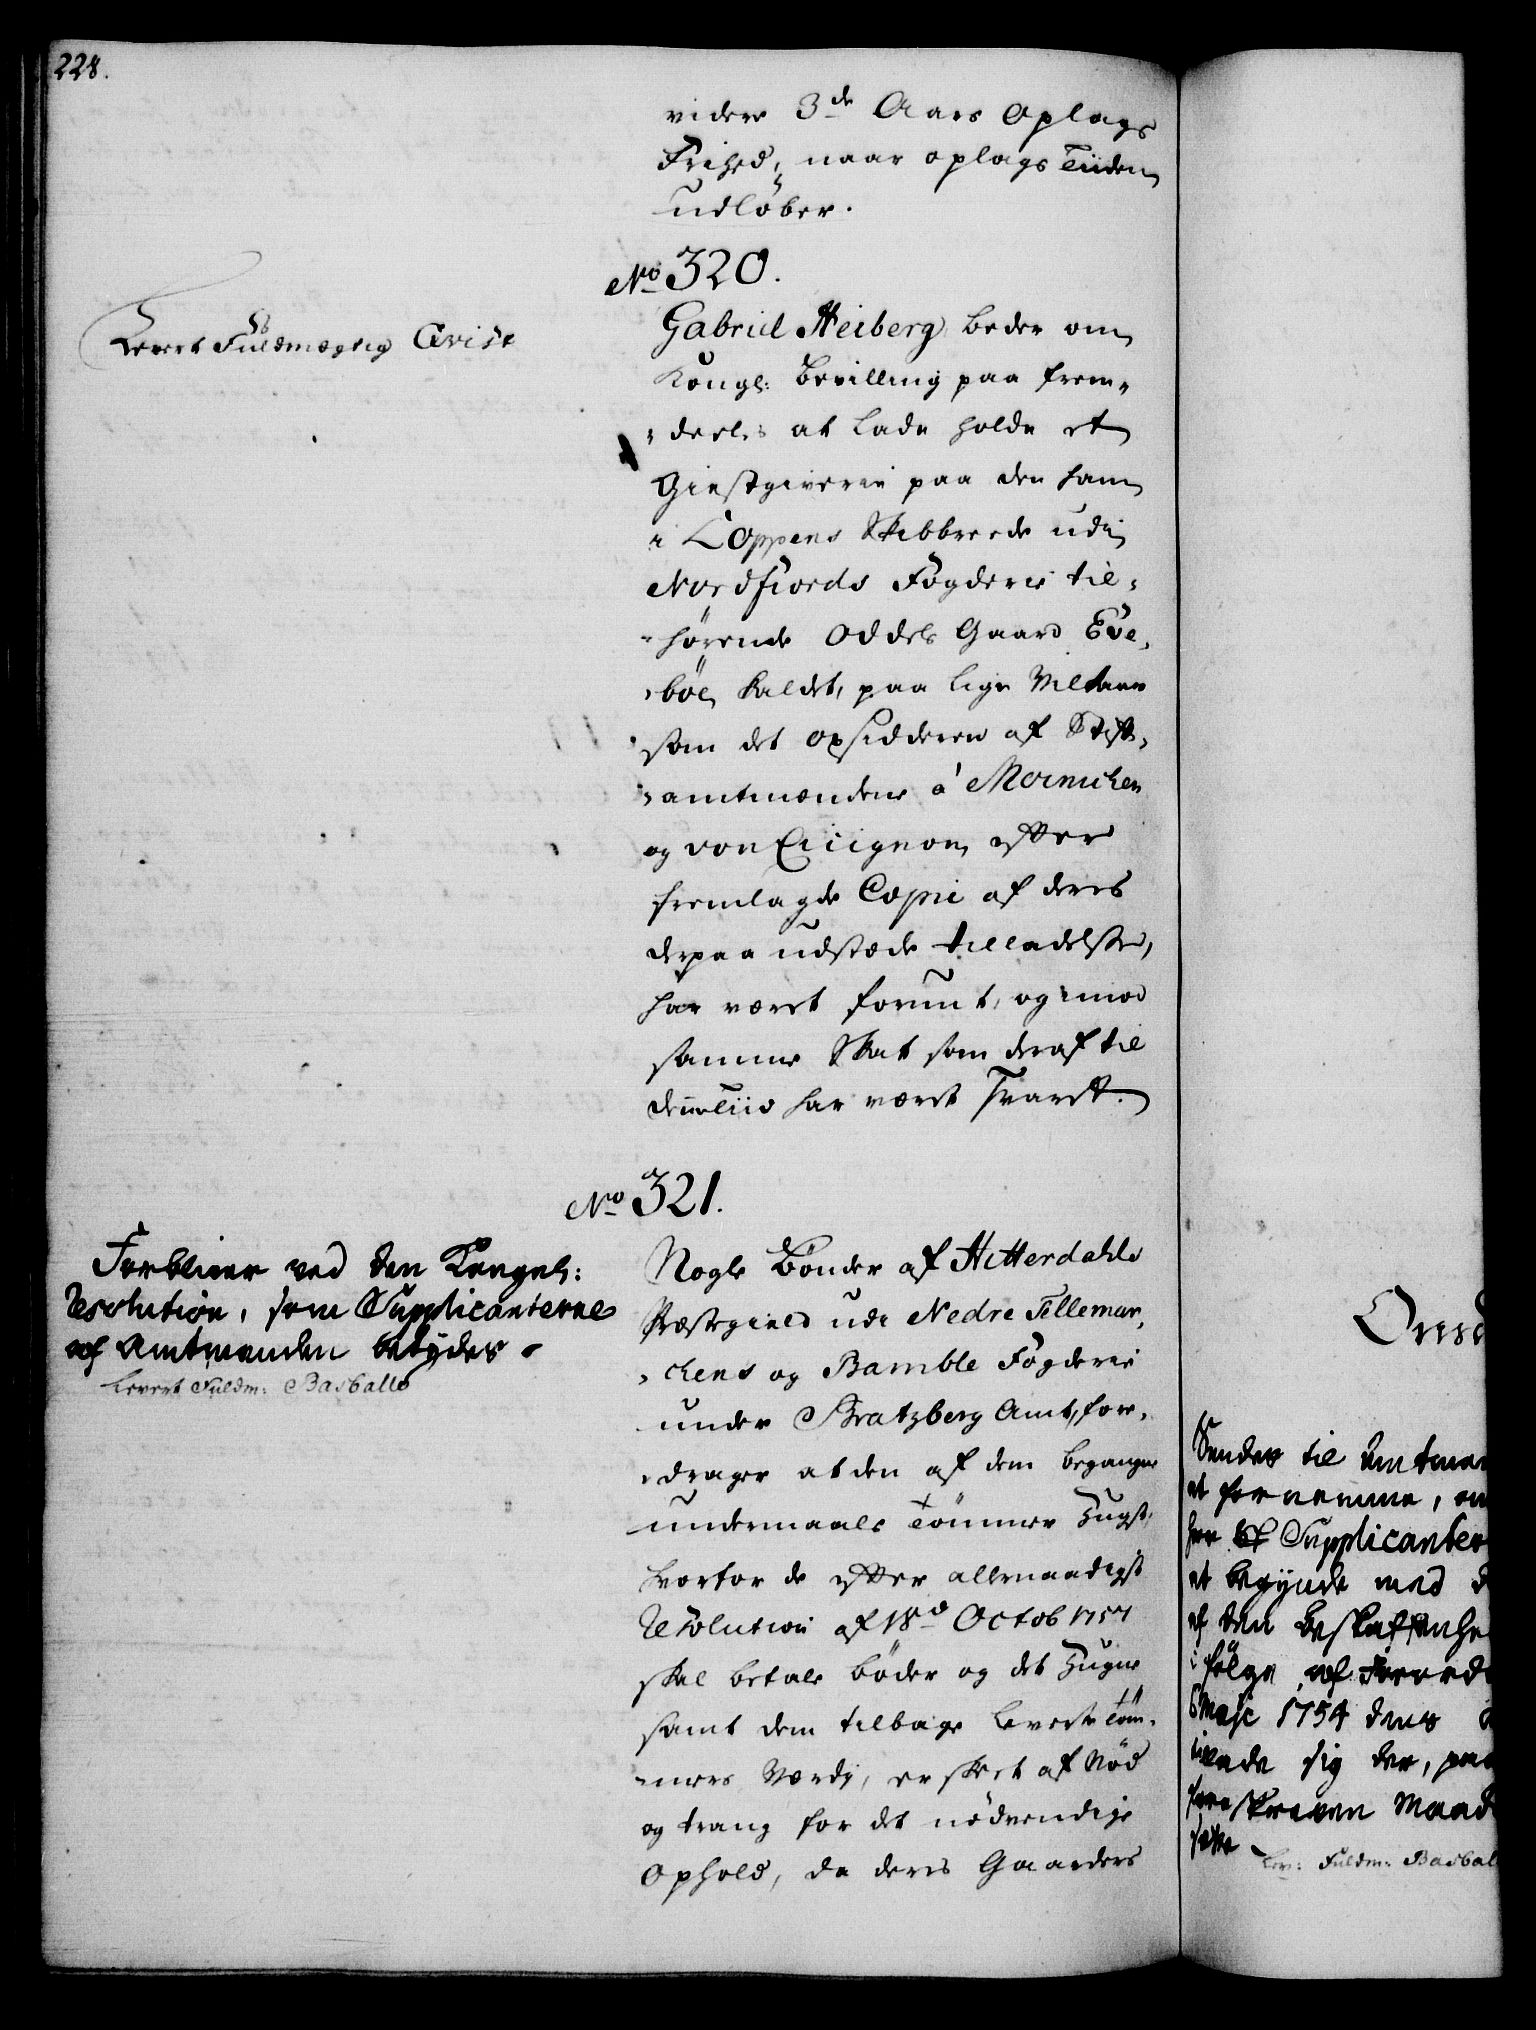 228.
videre 3de Aars Oplags
Frihed, naar oplags Tiiden
udlöber.
No 320.
Levert Fuldmægtig
Gabriel Heiberg beder om
Kongl: Bevilling paa frem-
-deeles at lade holde et
Giestgiverie paa den ham
i Skibbrede udi
Nordfiords Fogderie til-
-hörende Oddels Gaard Eve-
-böe kaldet, paa lige Vilkaar
som det opsidderen af Stift-
-amtmændene á Møinichen
og von Cicignon efter
fremlagde Copie af deres
derpaa udstæde tilladelse,
har været forundt, og imod
samme Skat som deraf til
denne Tiid har været svaret.
No 321.
Forbliver ved den Kongel:
Resolution, som Supplicanterne
af Amtmanden betydes.
Levert Fuldm: Basballe
Nogle Bönder af Hitterdahls
Præstegield udi Nedre Tillemar-
-chens og Bamble Fogderie
under Bratzberg Amt, fore-
-drager at den af dem begangne
undermaals Tömmer Hugst,
hvorfor de efter allernaadigst
Resolution af 18de Octob 1757
skal betale böder og det hugne
samt dem tilbage leverte Töm-
-mers Værdj, er skeet af Nöd
og trang for det nödvendige
Ophold, da deres Gaarders
Onsd
Sendes til Amtman
at fornemme, om
Supplicanter
at begynde med d
af den beskaffenhe
i fölge af Forord
6 Maji 1754 dens
sig der, paa
foreskreven Maad
Lev: Fuldm: Basbal